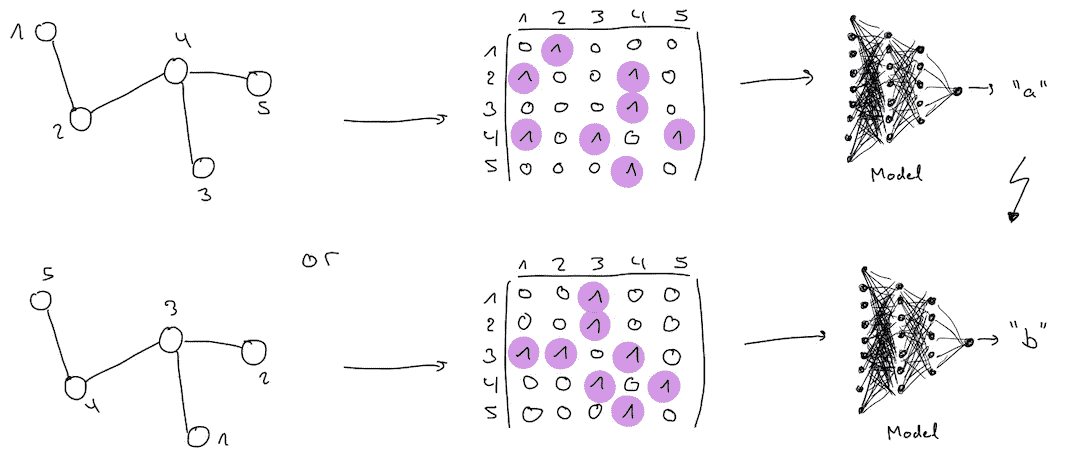 1
2
4
5
3
1 2 3 4 5
1 0 1 0 0 0
2 1 0 0 1 0
3 0 0 0 1 0
4 1 0 1 0 1
5 0 0 0 1 0
"a"
Model
or
5
4
3
2
1
1 2 3 4 5
1 0 0 1 0 0
2 0 0 1 0 0
3 1 1 0 1 0
4 0 0 1 0 1
5 0 0 0 1 0
"b"
Model